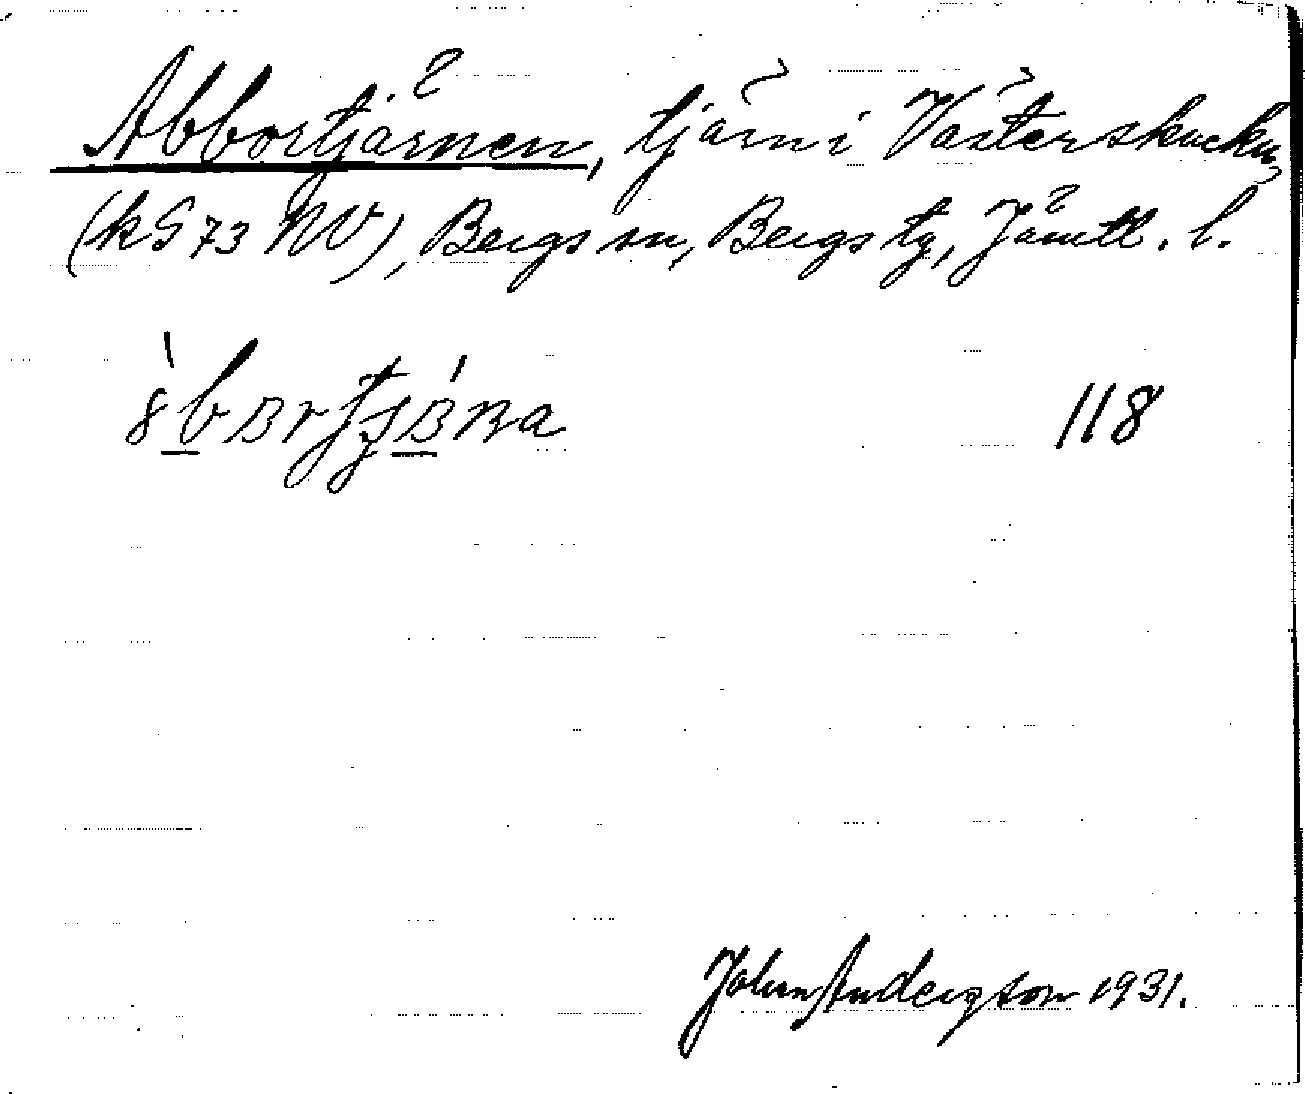 Abbortjärnen, tjärn i Västerskucku,
(kS 73 NV), Bergs sn, Bergs tg, Jämtl. l.
118
John Anderson 1931.